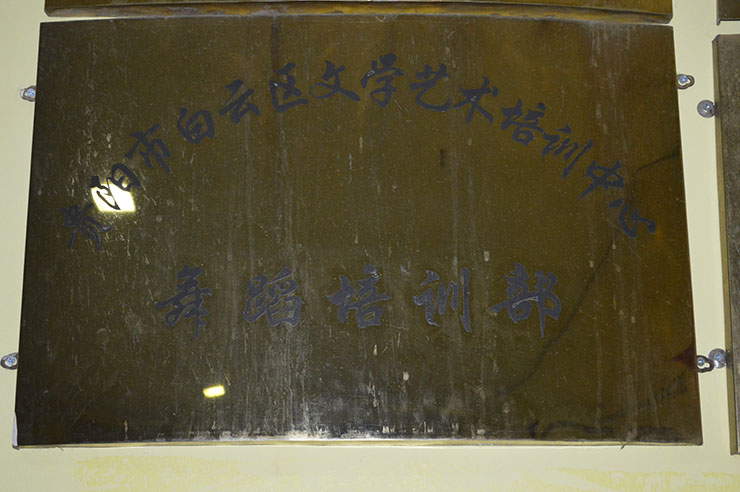 贵阳市白云区文学艺术培训中心
舞蹈培训部